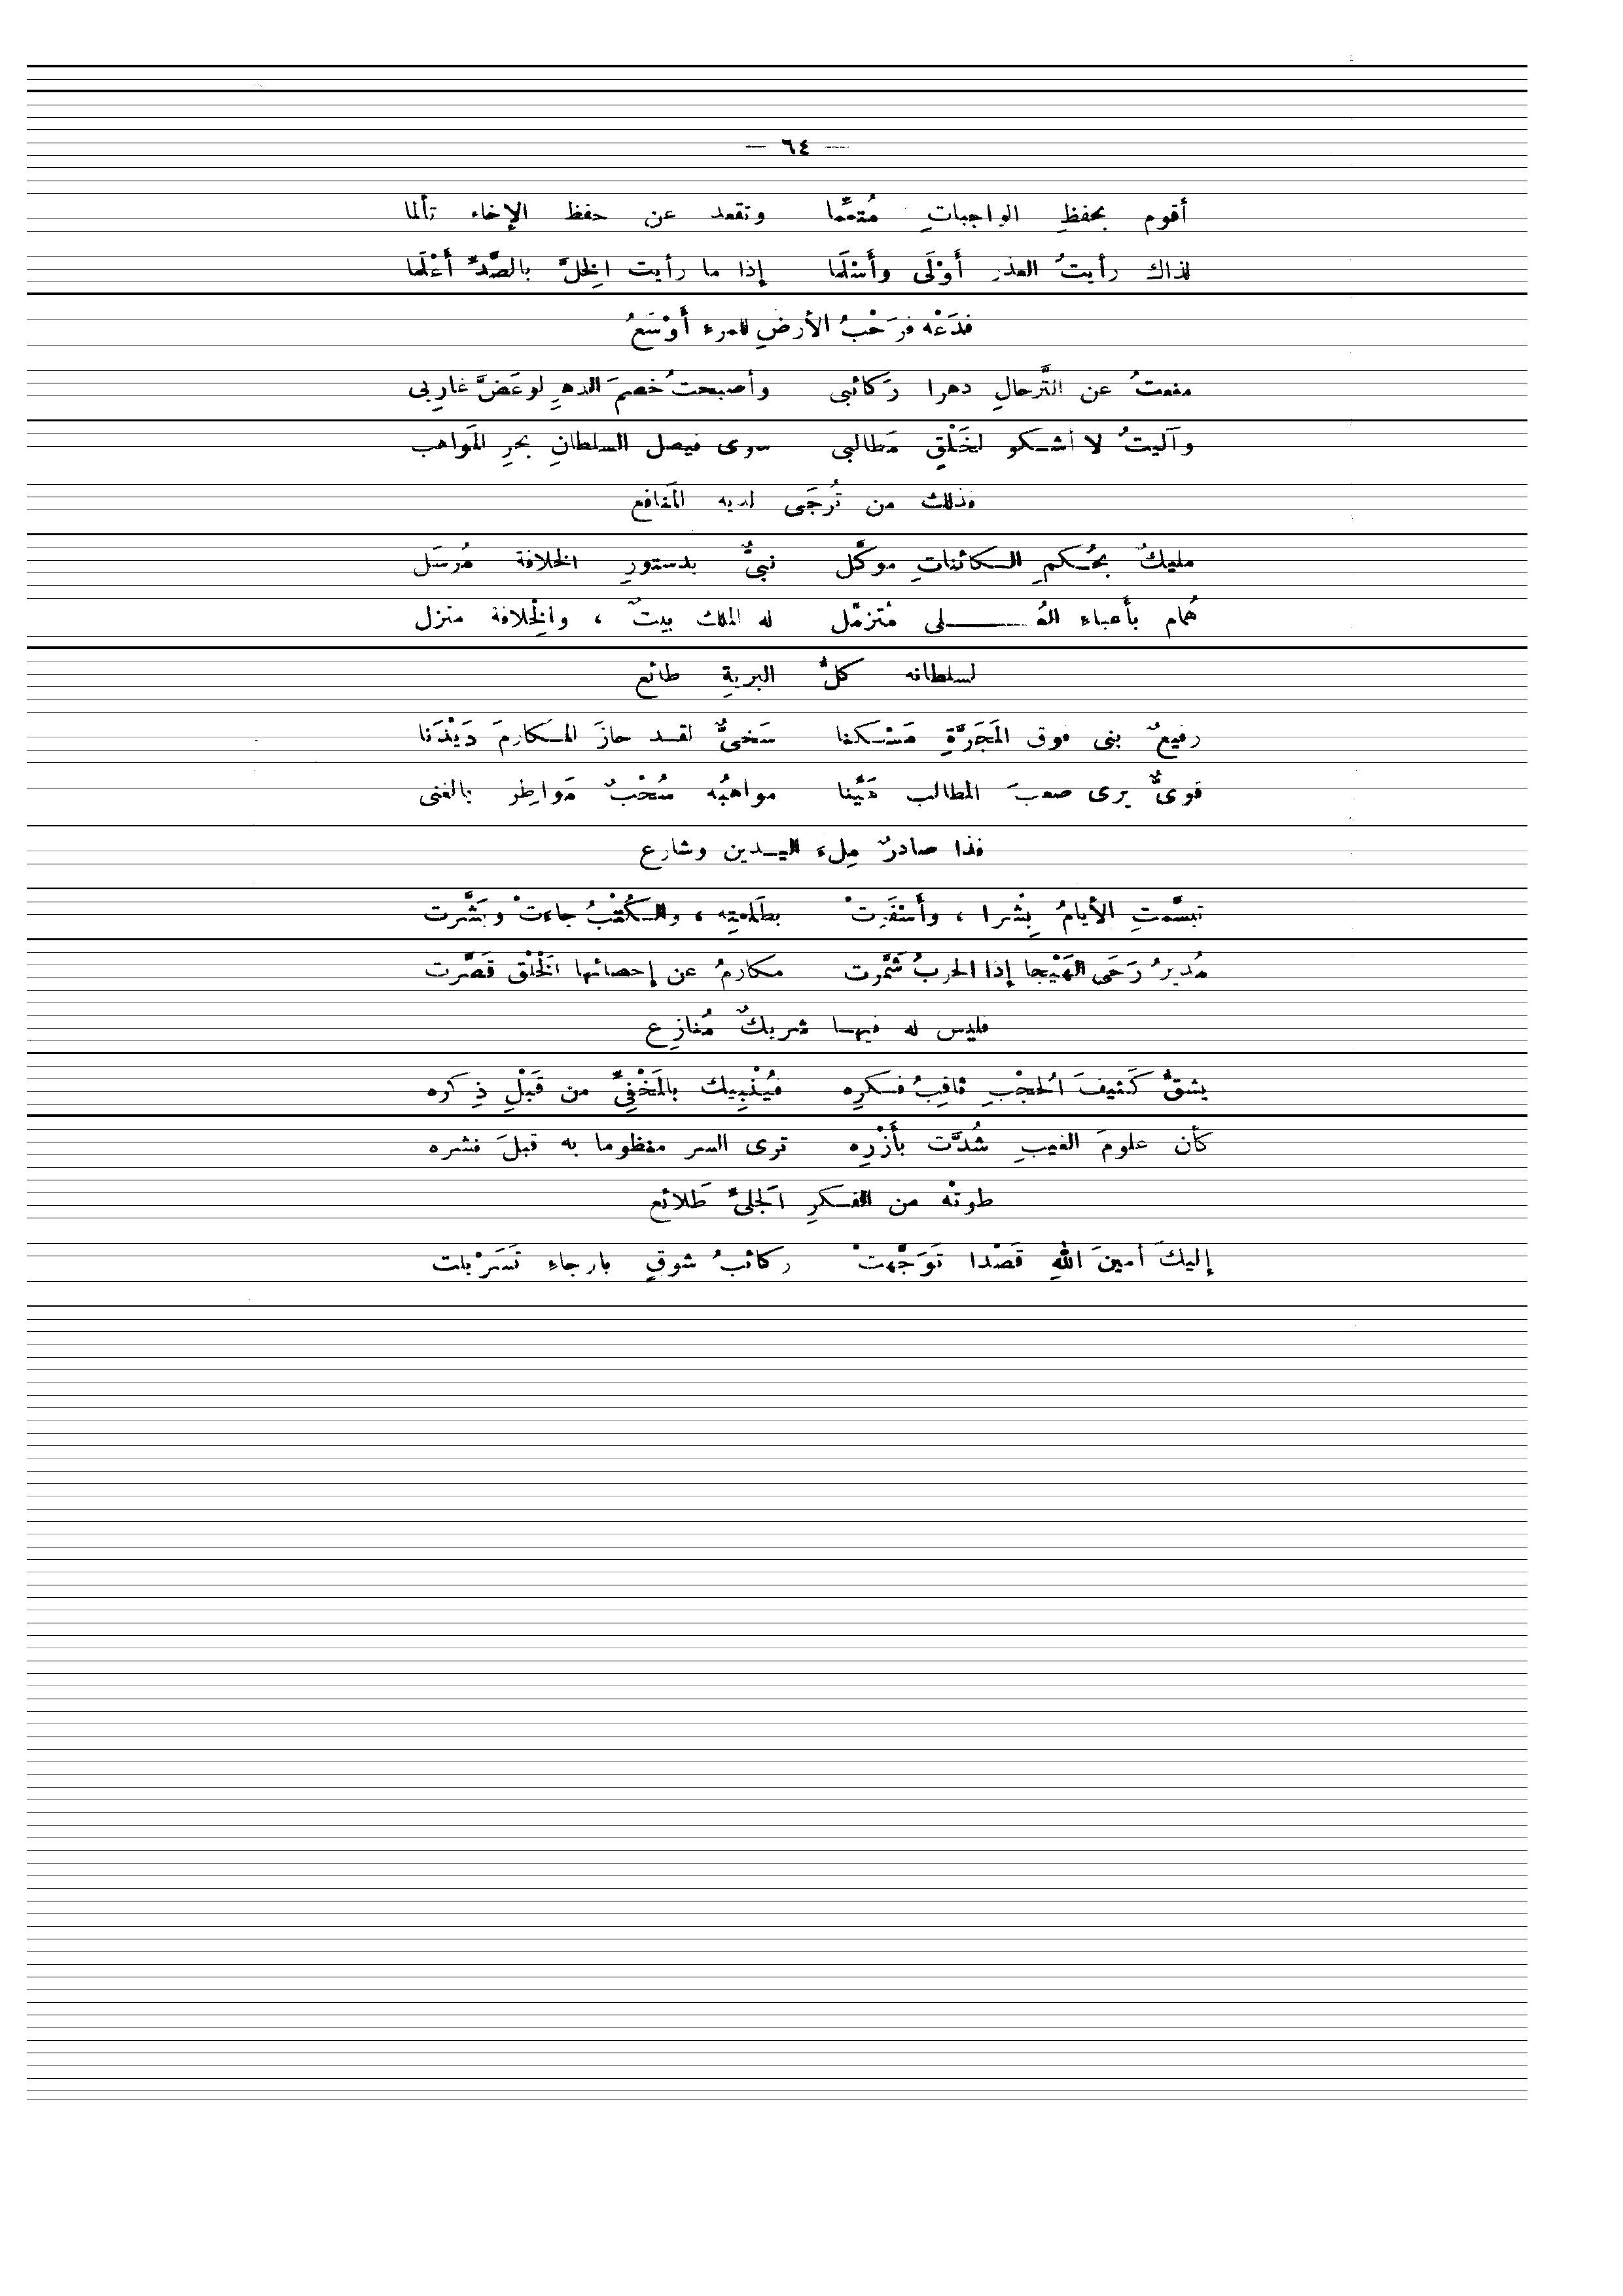 — ٦٤ —
أقوم بحفظِ الواجباتِ مُتمِّما وتقعد عن حفظ الإخاء تألما
لذاك رأيتُ العذر أَوْلَى وأَسْلَما إذا ما رأيت الخِلَّ بالصَّدِّ أَعْلَما
فدَعْه فرَحْبُ الأرضِ للمرء أَوْسَعُ
منعتُ عن التَّرحالِ دهرا رَكائبى وأصبحتُ خصمَ الدهرِ لو عَضَّ غارِبى
وآليتُ لا أشكو لخَلْقٍ مَطالبى سوى فيصل السلطانِ بحرِ المَواهب
فذلك من تُرجَى لديه المَنافع
مليكٌ بحُكمِ الكائناتِ موكَّل نبىٌّ بدستورِ الخلافة مُرسَل
هُمام بأَعباءِ العُلى مُتزمِّل له الملك بيتٌ ، والخِلافة منزل
لسلطانه كلُّ البريةِ طائع
رفيعٌ بنى فوق المَجَرَّةِ مَسْكنا سَخىٌّ لقد حازَ المكارمَ دَيْدَنا
قوىٌّ يرى صعبَ المطالب هَيِّنا مواهبُه سُحْبٌ مَواطِر بالغنى
فذا صادرٌ مِلءَ اليدين وشارع
تبسَّمتِ الأيامُ بِشرا ، وأَسْفَرتْ بطَلعتِه ، والكُتْبُ جاءتْ وبَشَّرت
مُديرُ رَحَى الهَيْجا إذا الحربُ شَمَّرت مكارمُ عن إحصائها الخَلْق قَصَّرت
فليس له فيها شريكٌ مُنازِع
يشقُّ كَثيفَ الحُجْبِ ثاقِبُ فكرِه فيُنْبِيك بالمَخْفِىِّ من قَبْلِ ذِكره
كأن علومَ الغيبِ شُدَّت بأَزْرِه ترى السر منظوما به قبلَ نشره
طوتْه من الفكرِ الجَلىِّ طَلائع
إليكَ أمينَ اللهِ قَصْدا تَوَجَّهتْ ركائبُ شوقٍ بارجاءِ تَسَرْبلت